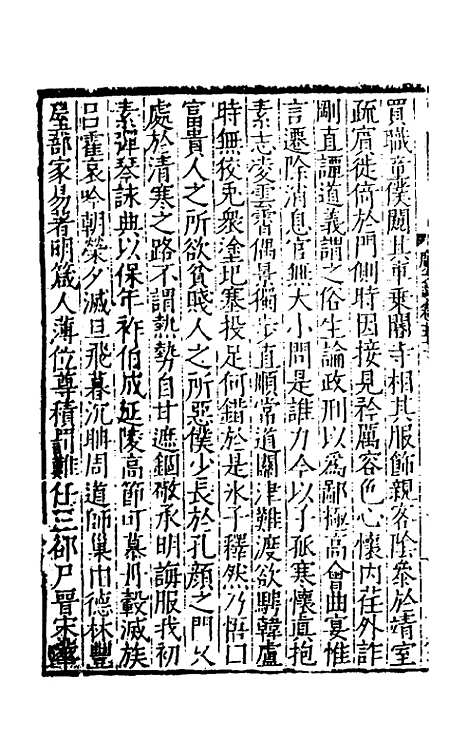 買職童僕闚其車乘閽寺相其服飾親客陰參於靖室
疏賓徙倚於門側時因接見矜厲容色心懷内荏外詐
剛直譚道義謂之俗生論政刑以爲鄙極高會曲宴惟
言遷除消息官無大小問是誰力今以子孤寒懷真抱
素志凌雲霄偶景獨步直順常道關津難渡欲騁韓盧
時無狡兔衆塗圮塞投足何錯於是氷子釋然乃悟曰
富貴人之所欲貧賤人之所惡僕少長於孔顔之門久
處於清寒之路不謂熱勢自甘遮錮敬承明誨服我初
素彈琴詠典以保年祚伯成延陵高節可慕丹轂滅族
吕霍哀吟朝榮夕滅旦飛暮沉聃周道師巢由德林豐
屋蔀家易著明箴人薄位尊積罰難任三郤尸晉宋華